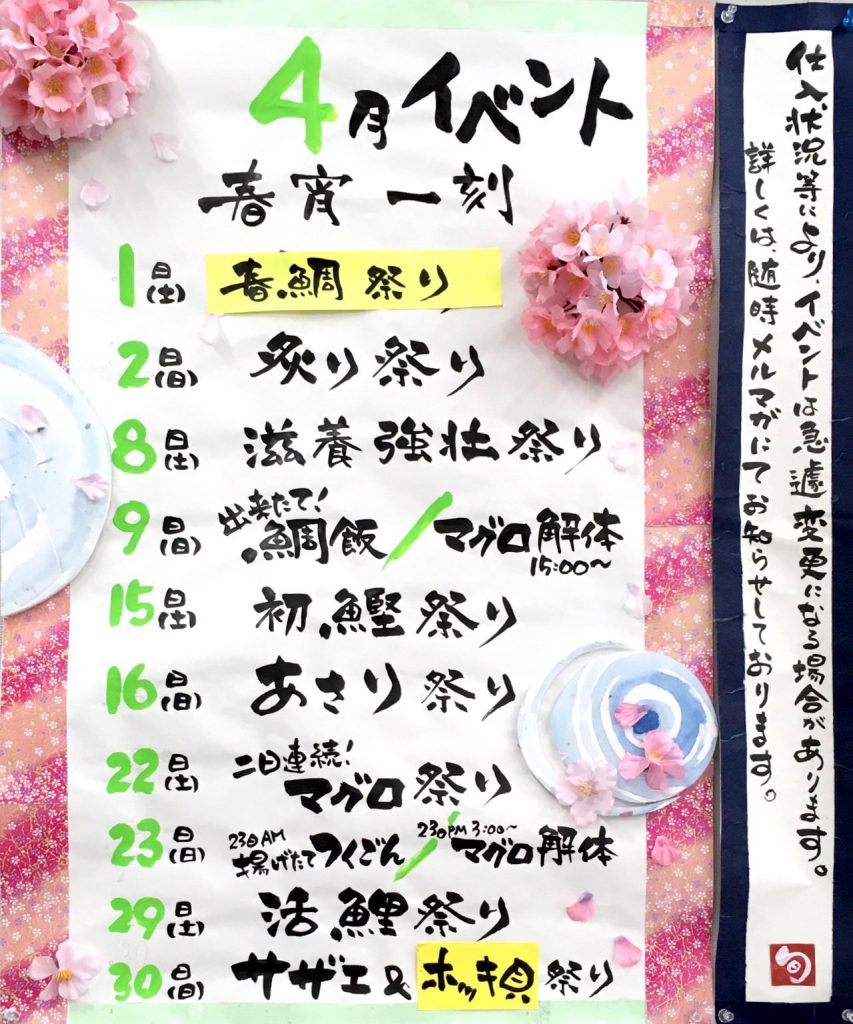 4月イベント
春宵一刻
1日(土) 春鯛祭り
2日(日) 炙り祭り
8日(土) 滋養強壮祭り
9日(日) 出来たて!鯛飯/マグロ解体
15:00〜
15日(土) 初鰹祭り
16日(日) あさり祭り
22日(土) 二日連続!マグロ祭り
23日(日) 23日AM 揚げたてフくごん/23日PM3:00〜 マグロ解体
29日(土) 活鯉祭り
30日(日) サザエ&ホッキ貝祭り
仕入状況等により、イベントは急遽変更になる場合があります。
詳しくは、随時メルマガにてお知らせしております。
旬